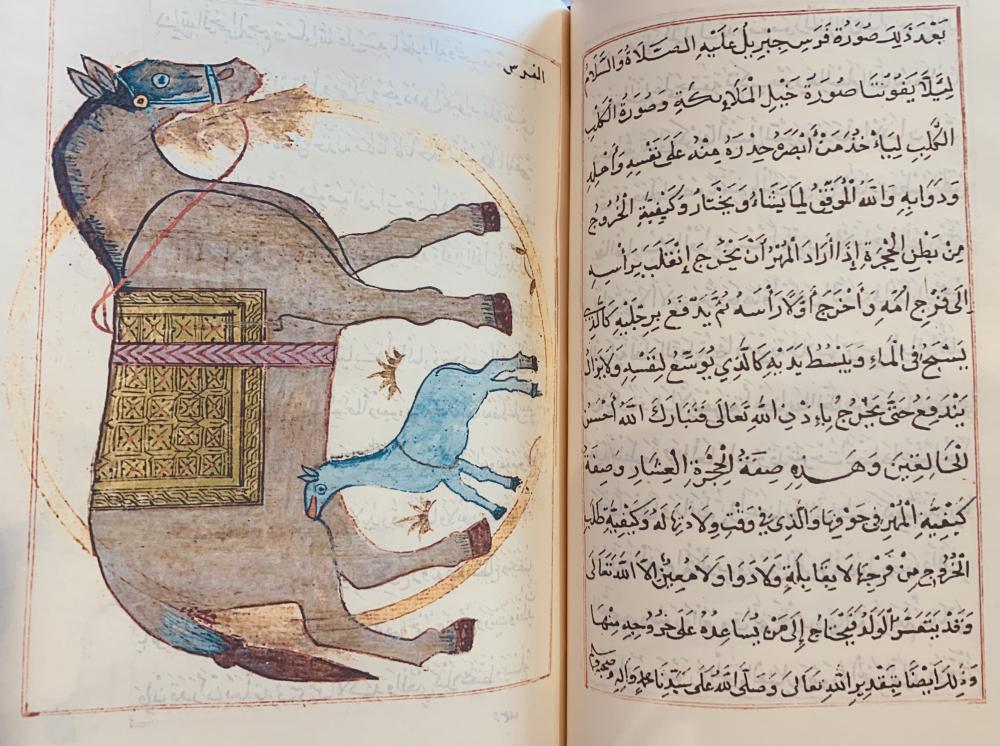 بَعْدَ ذَلِكَ صُورَةُ فَرَسِ جِبْرِيلُ عَلَيْهِ الصَّلَاةُ وَالسَّلَامُ
لِيَلَّا يَفُوتُنَا صُورَةُ خَيْلِ الْمَلَائِكَةِ وَصُورَةُ الْكَلْبِ
الكَلِبِ لِيَاءْخُذَ مَنْ أَبْصَرَهُ حِذْرَهُ مِنْهُ عَلَى نَفْسِهِ وَأَهْلِهِ
وَدَوَابِهِ وَاللَّهُ الْمُوَفِّقُ لِمَا يَشَاءُ وَيَخْتَارُ وَكَيْفِيَّةِ الْخُرُوجِ
مِنْ بَطْنِ الْحِجْرَةِ إِذَا أَرَادَ الْمُهْرُ أَنْ يَخْرُجَ إِنْقَلَبَ بِرَأْسِهِ
إِلَى فَرْجِ أُمِّهِ وَأَخْرَجَ أَوَّلًا رَأْسَهُ ثُمَّ يَدْفَعُ بِرِجْلَيْهِ كَالَّذِي
يَسْبَحُ فِي الْمَاءِ وَيَبْسُطُ يَدَيْهِ كَالَّذِي يُوَسِّعُ لِنَفْسِهِ وَلَا يَزَالُ
يَنْدَفِعُ حَتَّى يَخْرُجَ بِإِذْنِ اللَّهِ تَعَالَى فَتَبَارَكَ اللَّهُ أَحْسَنُ
الْخَالِقِينَ وَهَذِهِ صِفَةُ الْحِجْرَةِ الْعِشَارِ وَصِفَةُ
كَيْفِيَّةِ الْمُهْرِ فِي جَوْفِهَا وَالَّذِي فِي وَقْتِ وِلَادِتِهَا لَهُ وَكَيْفِيَّةِ طَلَبِ
الْخُرُوجِ مِنْ فَرْجِهَا لَا بِقَابِلَةٍ وَلَا دَوَا وَلَا مُعِينٌ إِلَّا اللَّهُ تَعَالَى
وَقَدْ يَتَعَسَّرُ الْوَلَدُ فَيَحْتَاجُ إِلَى مَنْ يُسَاعِدُهُ عَلَى خُرُوجِهِ مِنْهَا
وَذَلِكَ أَيْضًا بِتَقْدِيرِ اللَّهِ تَعَالَى وَصَلَّى اللَّهُ عَلَى سَيِّدِنَا مُحَمَّدٍ وَآلِهِ وَصَحْبِهِ وَسَلَّمَ
الفرس